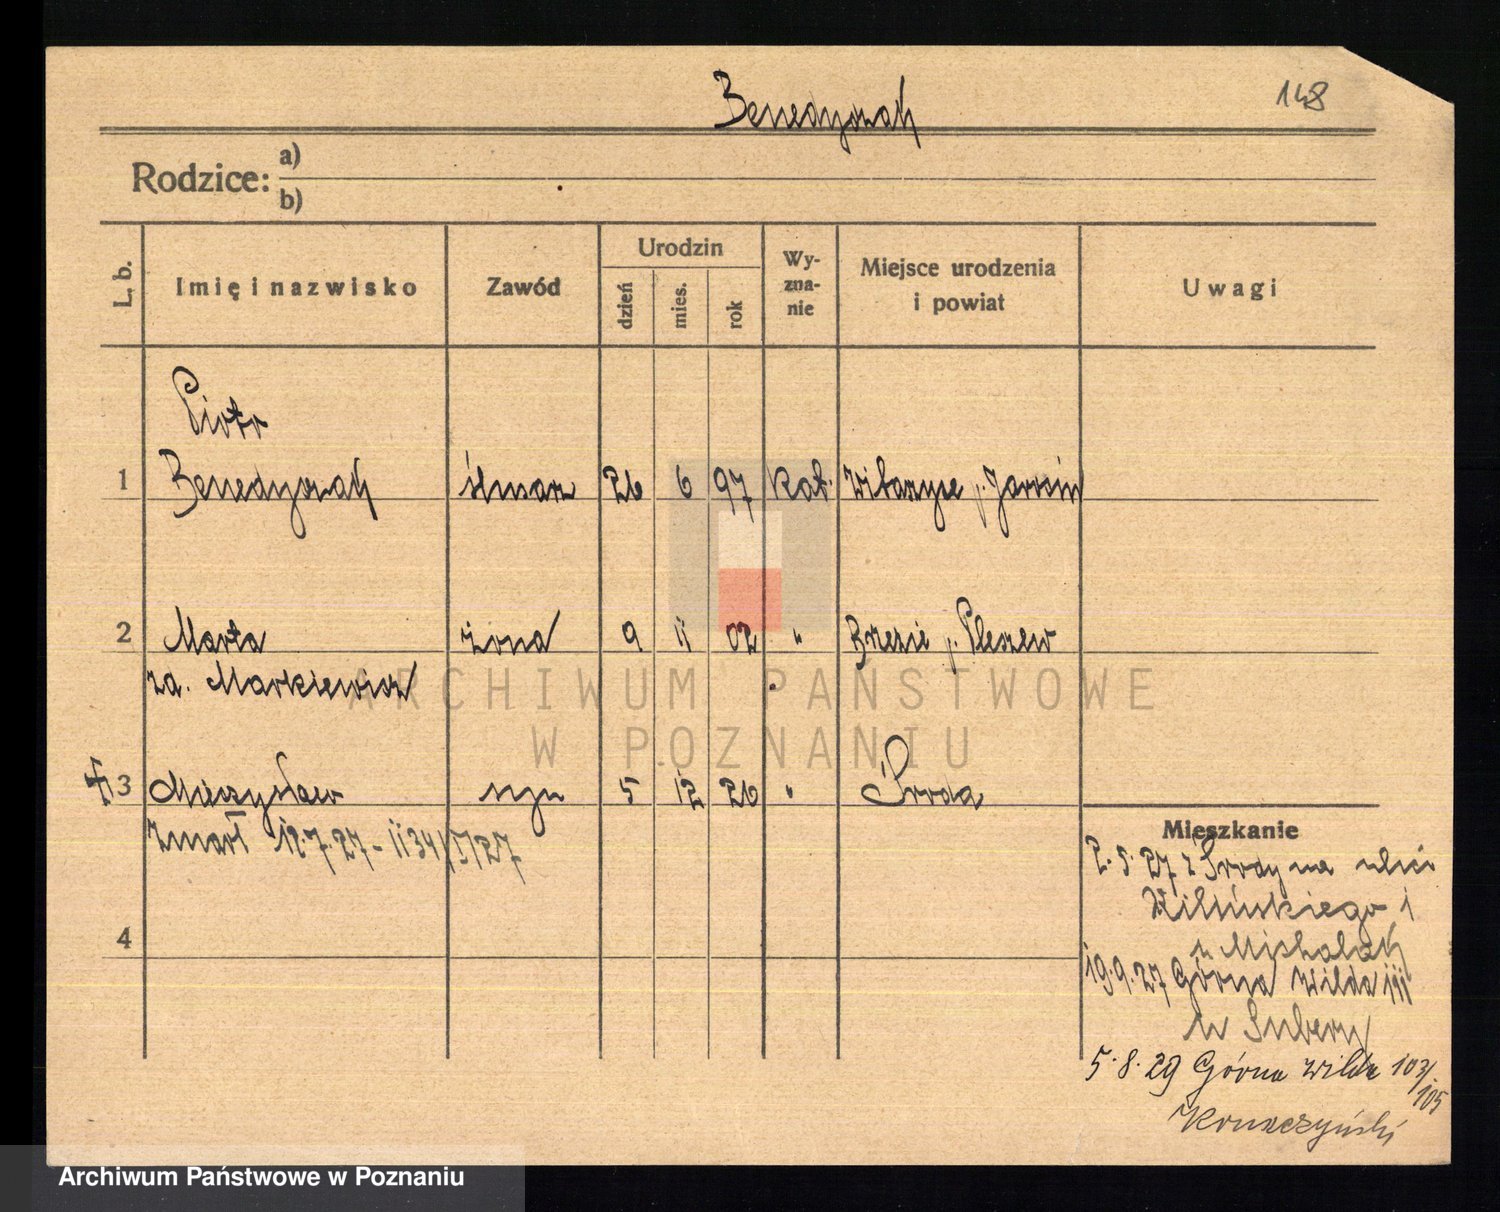 Benedyczak
148
Rodzice: a)
b)
L. b. Imię i nazwisko Zawód Urodzin dzień mies. rok Wy-zna-nie Miejsce urodzenia i powiat Uwagi
Piotr
1 Benedyczak ślusarz 26 6 97 Kat. Witaszyce p. Jarocin
2 Marta żona 9 11 02 " Brzezie p. Pleszew
za. Markiewicz
3 Mieczysław syn 5 12 26 " Środa
zmarł 12.7.27 - 1134/I/27
4
Mieszkanie
2.5.27 z Środy na ulicę
Kilińskiego 1
u Michalak
19.9.27 Górna Wilda 111
u Subery
5.8.29 Górna Wilda 103/105
Kruszczyński
ARCHIWUM PAŃSTWOWE
W POZNANIU
Archiwum Państwowe w Poznaniu